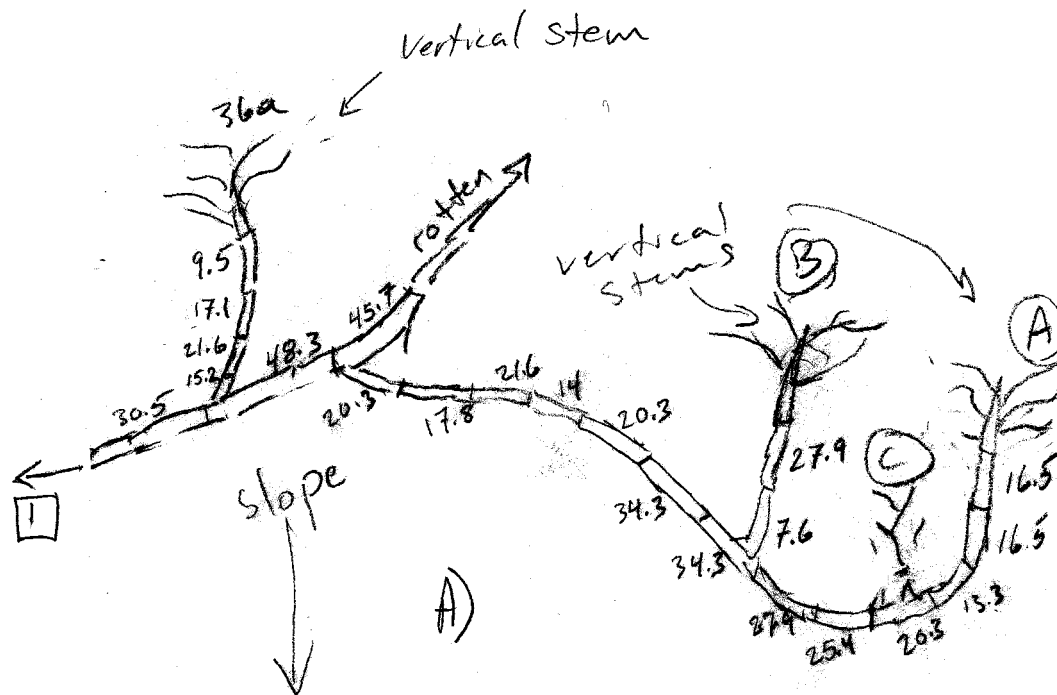 vertical stem
36a
rotten
9.5
17.1
21.6
15.2
30.5
48.3
45.7
1
slope
20.3
17.8
21.6
14
20.3
34.3
34.3
vertical
stems
B
A
27.9
7.6
C
16.5
16.5
13.3
20.3
25.4
27.9
A)